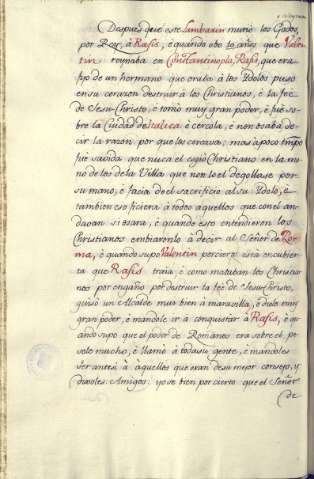 Despues que este Lambarin murio los Godos,
por Rey, à Rafis, e quando obo 10 años que Valen-
tin reynaba en Constantinopla, Rafis, que era
fijo de un hermano que oraba à los Ydolos puso
en su corazon destruir à los Christianos, è la feè
de Jesu-Christo, è tomò muy gran poder, è fuè so-
bre la Ciudad de Italica è cercola, è non osaba de-
cir la razon por que los cercava; mas à poco tiempo
fuè savida que nunca el cogió Christiano en la ma-
no de los de la Villa que non lo el degollase por
su mano, è facia de el sacrificio al su Ydolo, è
tambien eso ficiera à todos aquellos que con el an-
davan si osara, è quando esto entendieron los
Christianos embiaronlo à decir al Señor de Ro-
ma, è quando supo Valentin
ta que Rafis traia, è como mataban los Christia-
nos por engaño por destruir la feè de Jesu-Christo,
quisò un Alcalde mui bien à maravilla, è diole muy
gran poder, è mandole ir a conquistar à Rafis, è qu-
ando supo que el poder de Romanos era sobre el, pe-
sole mucho, è llamò à toda su gente, è mandoles
ser ante si à aquellos que eran de su mejor consejo, y
dixoles: Amigos: yo se bien por cierto que el Señor
de